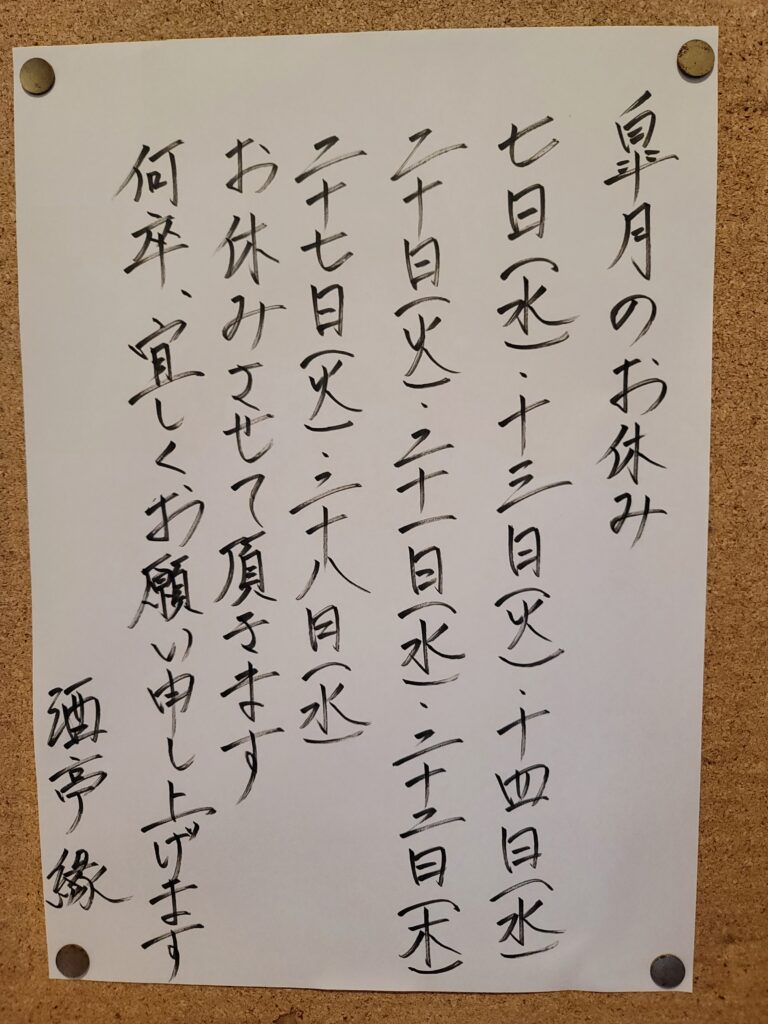 皐月のお休み
七日(水)・十三日(火)・十四日(水)
二十日(火)・二十一日(水)・二十二日(木)
二十七日(火)・二十八日(水)
お休みさせて頂きます
何卒、宜しくお願い申し上げます
酒亭 縁